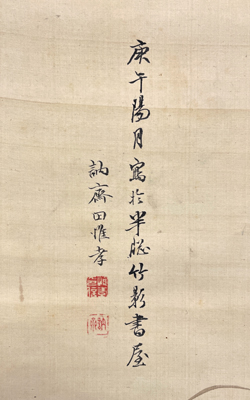 庚午陽月寫於半牕竹影書屋
訥齋田惟孝